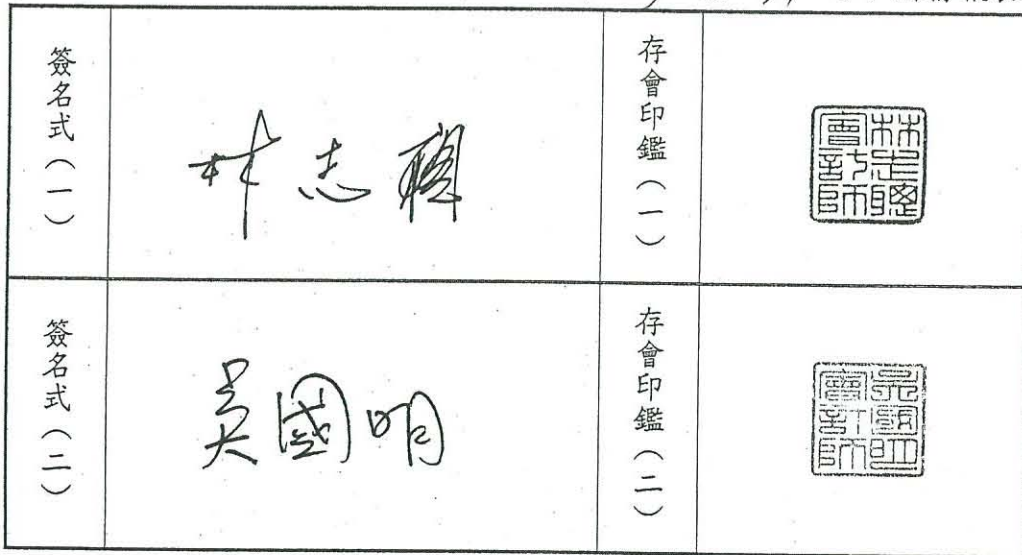 簽名式（一）
林志聰
存會印鑑（一）
林志聰會計師
簽名式（二）
吳國明
存會印鑑（二）
吳國明會計師